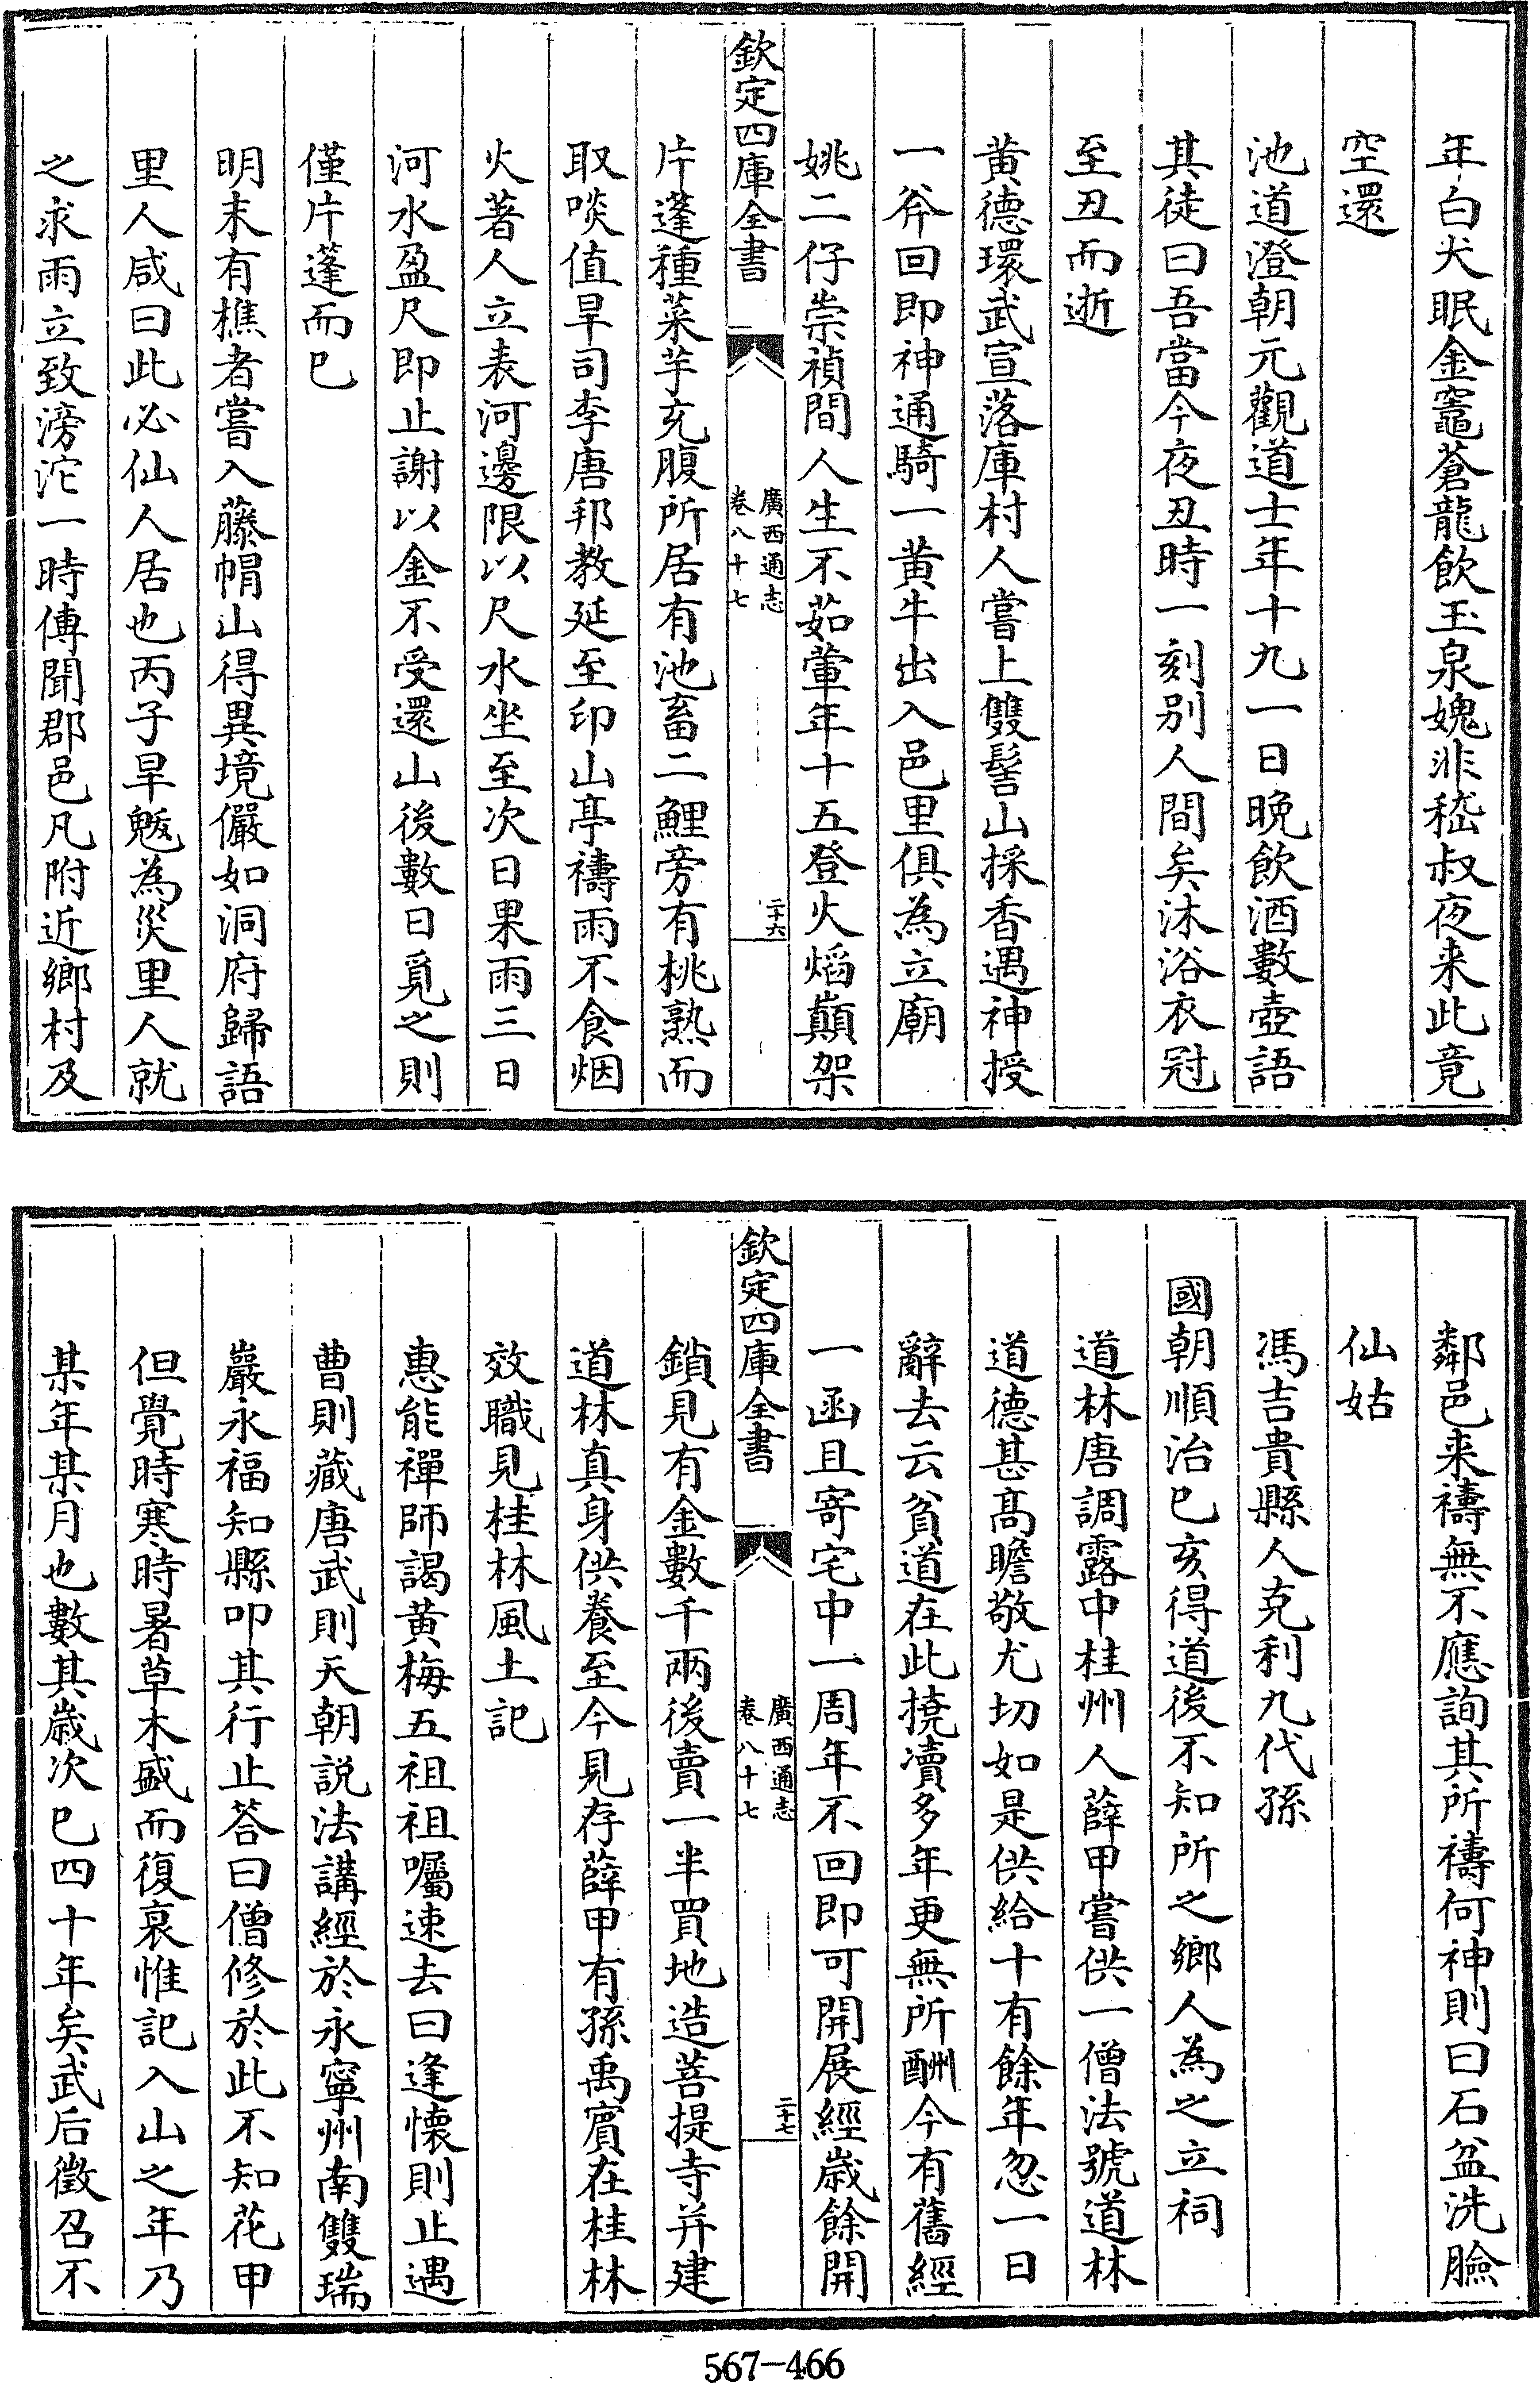 年白犬眠金竈蒼龍飲玉泉媿非嵇叔夜来此竟
空還
池道澄朝元觀道士年十九一日晚飲酒數壺語
其徒曰吾當今夜丑時一刻别人間矣沐浴衣冠
至丑而逝
黄德環武宣落庫村人嘗上雙髻山採香遇神授
一斧回即神通騎一黄牛出入邑里俱為立廟
姚二仔崇禎間人生不茹葷年十五登火熖巔架
欽定四庫全書
廣西通志
卷八十七
二十六
片蓬種菜芋充腹所居有池畜二鯉旁有桃熟而
取啖值旱司李唐邦教延至印山亭禱雨不食烟
火著人立表河邊限以尺水坐至次日果雨三日
河水盈尺即止謝以金不受還山後數日覓之則
僅片蓬而已
明末有樵者嘗入藤帽山得異境儼如洞府歸語
里人咸曰此必仙人居也丙子旱魃為災里人就
之求雨立致滂沱一時傳聞郡邑凡附近鄉村及
鄰邑来禱無不應詢其所禱何神則曰石盆洗臉
仙姑
馮吉貴縣人克利九代孫
國朝順治己亥得道後不知所之鄉人為之立祠
道林唐調露中桂州人薛甲嘗供一僧法號道林
道德甚髙瞻敬尤切如是供給十有餘年忽一日
辭去云貧道在此撓瀆多年更無所酬今有舊經
一函且寄宅中一周年不回即可開展經歲餘開
欽定四庫全書
廣西通志
卷八十七
二十七
鎖見有金數千兩後賣一半買地造菩提寺并建
道林真身供養至今見存薛甲有孫禹賓在桂林
效職見桂林風土記
惠能禪師謁黄梅五祖祖囑速去曰逢懷則止遇
曹則藏唐武則天朝説法講經於永寧州南雙瑞
巖永福知縣叩其行止答曰僧修於此不知花甲
但覺時寒時暑草木盛而復衰惟記入山之年乃
某年某月也數其歲次已四十年矣武后徵召不
567-466